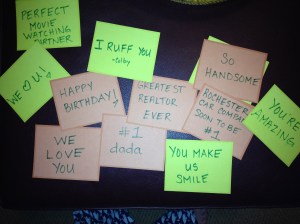 PERFECT
MOVIE
WATCHING
PARTNER
I RUFF YOU
-Colby
SO
HANDSOME
WE ♡ U!
HAPPY
BIRTHDAY!
GREATEST
REALTOR
EVER
ROCHESTER
CAR COMPANY
SOON TO BE
#1
YOU'RE
AMAZING
WE
LOVE
YOU
#1
dada
YOU MAKE
US
SMILE